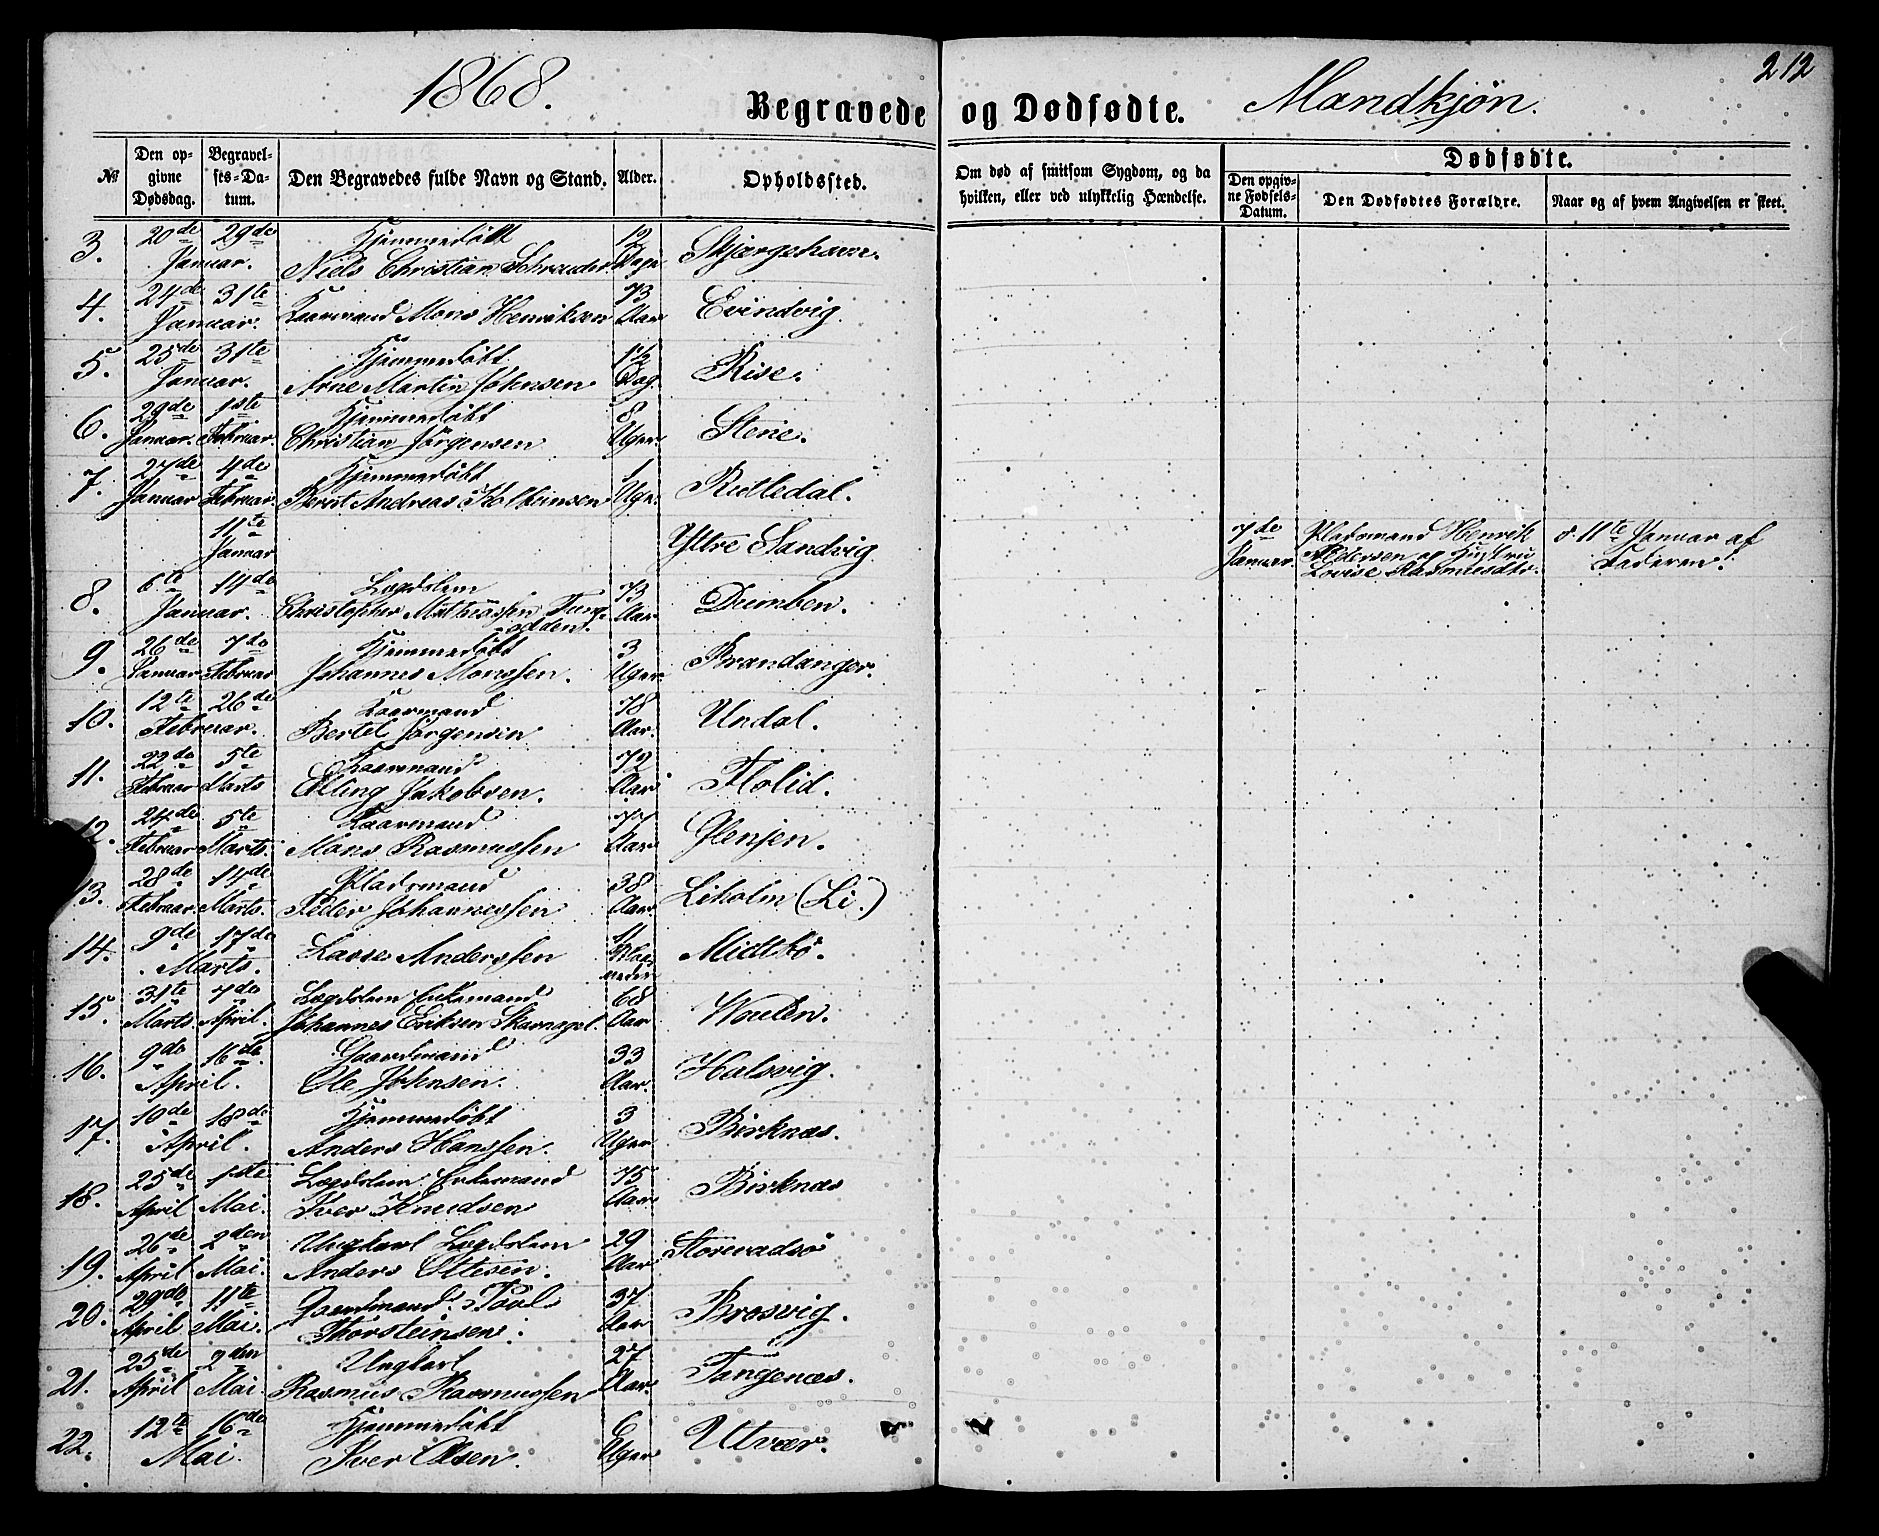 1868.
Begravede og Dødfødte. Mandkjøn.
212
No
Den opgivne Dødsdag.
Begravelses-Datum.
Den Begravedes fulde Navn og Stand.
Alder.
Opholdssted.
Om død af smitsom Sygdom, og da hvilken, eller ved ulykkelig Hændelse.
Dødfødte.
Den opgivne Fødsels-Datum.
Den Dødfødtes Forældre.
Naar og af hvem Angivelsen er skeet.
3. 20de 29de Hjemmedøbt 12 Skjærgehavn.
Januar. Niels Christian Schrøuder Dage
4. 24de 31te Kaarmand Mons Henriksen 73 Evindvig.
Januar. Aar
5. 25de 31te Hjemmedøbt 1½ Rise.
Januar. Arne Martin Johnsen Dag.
6. 29de 1ste Hjemmedøbt 8 Stene.
Januar. Februar. Christian Jørgensen Uger.
7. 27de 4de Hjemmedøbt 1 Rutledal.
Januar Februar. Bernt Andreas Kolbeinsen Uge.
11te Ytre Sandvig. 7de Pladsmand Henrik d. 11te Januar af
Januar Januar. Pedersen og Hustru Faderen.
Lovise Rasmusdtr.
8. 6te 14de Lægdslem 73 Dumben.
Januar. Christopher Mathiassen Tunge- Aar.
odden.
9. 26de 7de Hjemmedøbt 3 Brandanger.
Januar Februar Johannes Monssen. Uger.
10. 12te 26de Kaarmand 78 Undal.
Februar. Bertel Jørgensen Aar.
11. 22de 5te Kaarmand 72 Flolid.
Februar Marts Elling Jakobsen. Aar
12. 24de 5te Kaarmand 77 Glenjen.
Februar Marts. Mons Rasmussen Aar.
13. 28de 14de Pladsmand 38 Liholm (Li.)
Februar. Marts. Peder Johannessen Aar.
14. 9de 17de Lasse Anderssen 11 Midtbø.
Marts. Maaneder
15. 31te 7de Lægdslem Enkemand 68 Wouten.
Marts April. Johannes Eriksen Skarnagel. Aar
16. 9de 16de Gaardmand 33 Halsvig.
April. Ole Johnsen. Aar.
17. 10de 18de Hjemmedøbt 3 Birknæs.
April. Anders Hanssen. Uger
18. 25de 1ste Lægdslem Enkemand 75 Birknæs
April Mai. Iver Knudsen Aar.
19. 26de 2den Ungkarl Lægdslem 29 Storevadsø
April Mai. Anders Ottesen. Aar
20. 29de 11te Gaardmand Povl 37 Brosvig.
April Mai. Thorsteinsen. Aar
21. 25de 2den Ungkarl 27 Tangenæs.
April Mai. Rasmus Rasmussen Aar.
22. 12te 16de Hjemmedøbt 6 Utvær.
Mai. Iver Olsen. Uger